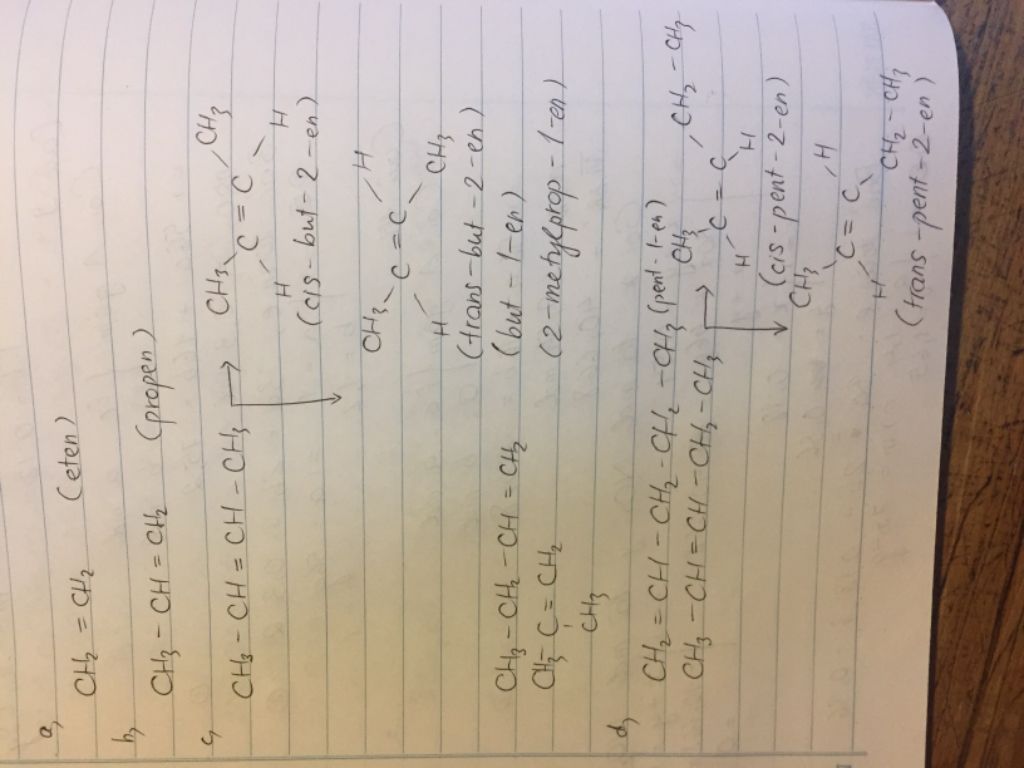 a,
CH2 = CH2 (eten)
b,
CH3 - CH = CH2 (propen)
c,
CH3 - CH = CH - CH3 → CH3 CH3
C = C
H H
(cis - but - 2 - en)
CH3 H
C = C
H CH3
(trans - but - 2 - en)
CH3 - CH2 - CH = CH2 (but - 1 - en)
CH3 - C = CH2 (2 - metylprop - 1 - en)
CH3
d,
CH2 = CH - CH2 - CH2 - CH3 (pent - 1 - en)
CH3 - CH = CH - CH2 - CH3 → CH3 CH2 - CH3
C = C
H H
(cis - pent - 2 - en)
CH3 H
C = C
H CH2 - CH3
(trans - pent - 2 - en)